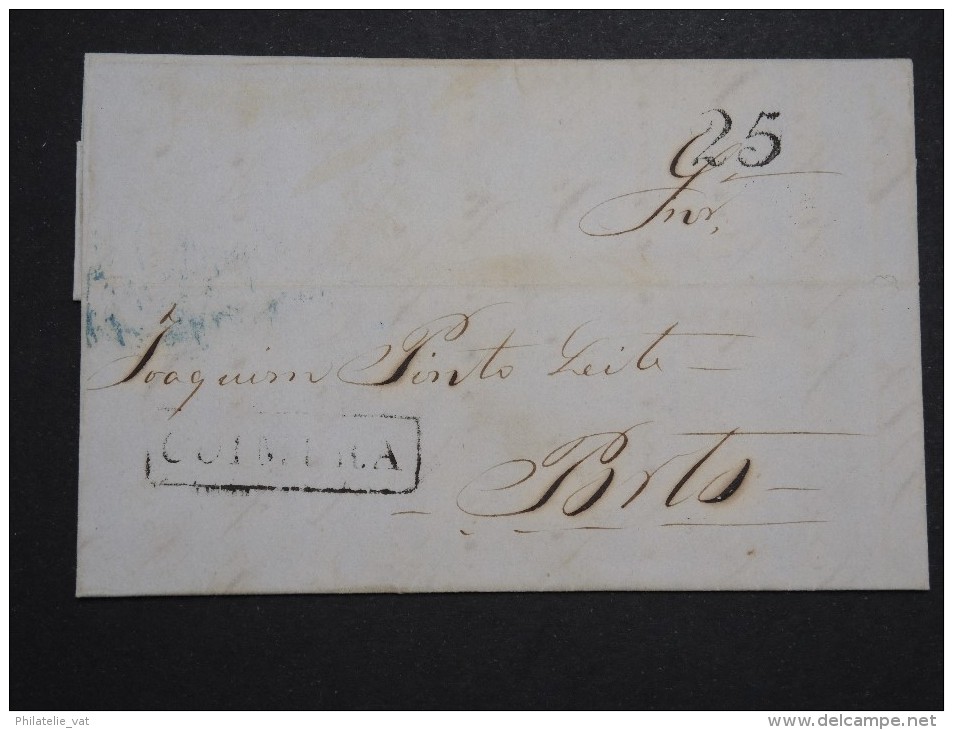 25
Snr,
Joaquim Pinto Leite
COIMBRA
Porto
Philatelie_vat
http://www.delcampe.net